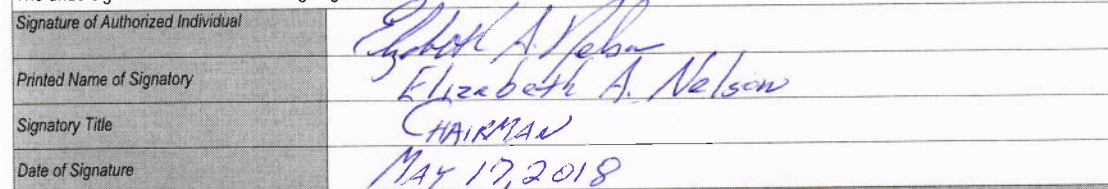 Signature of Authorized Individual Elizabeth A. Nelson
Printed Name of Signatory Elizabeth A. Nelson
Signatory Title CHAIRMAN
Date of Signature MAY 17, 2018